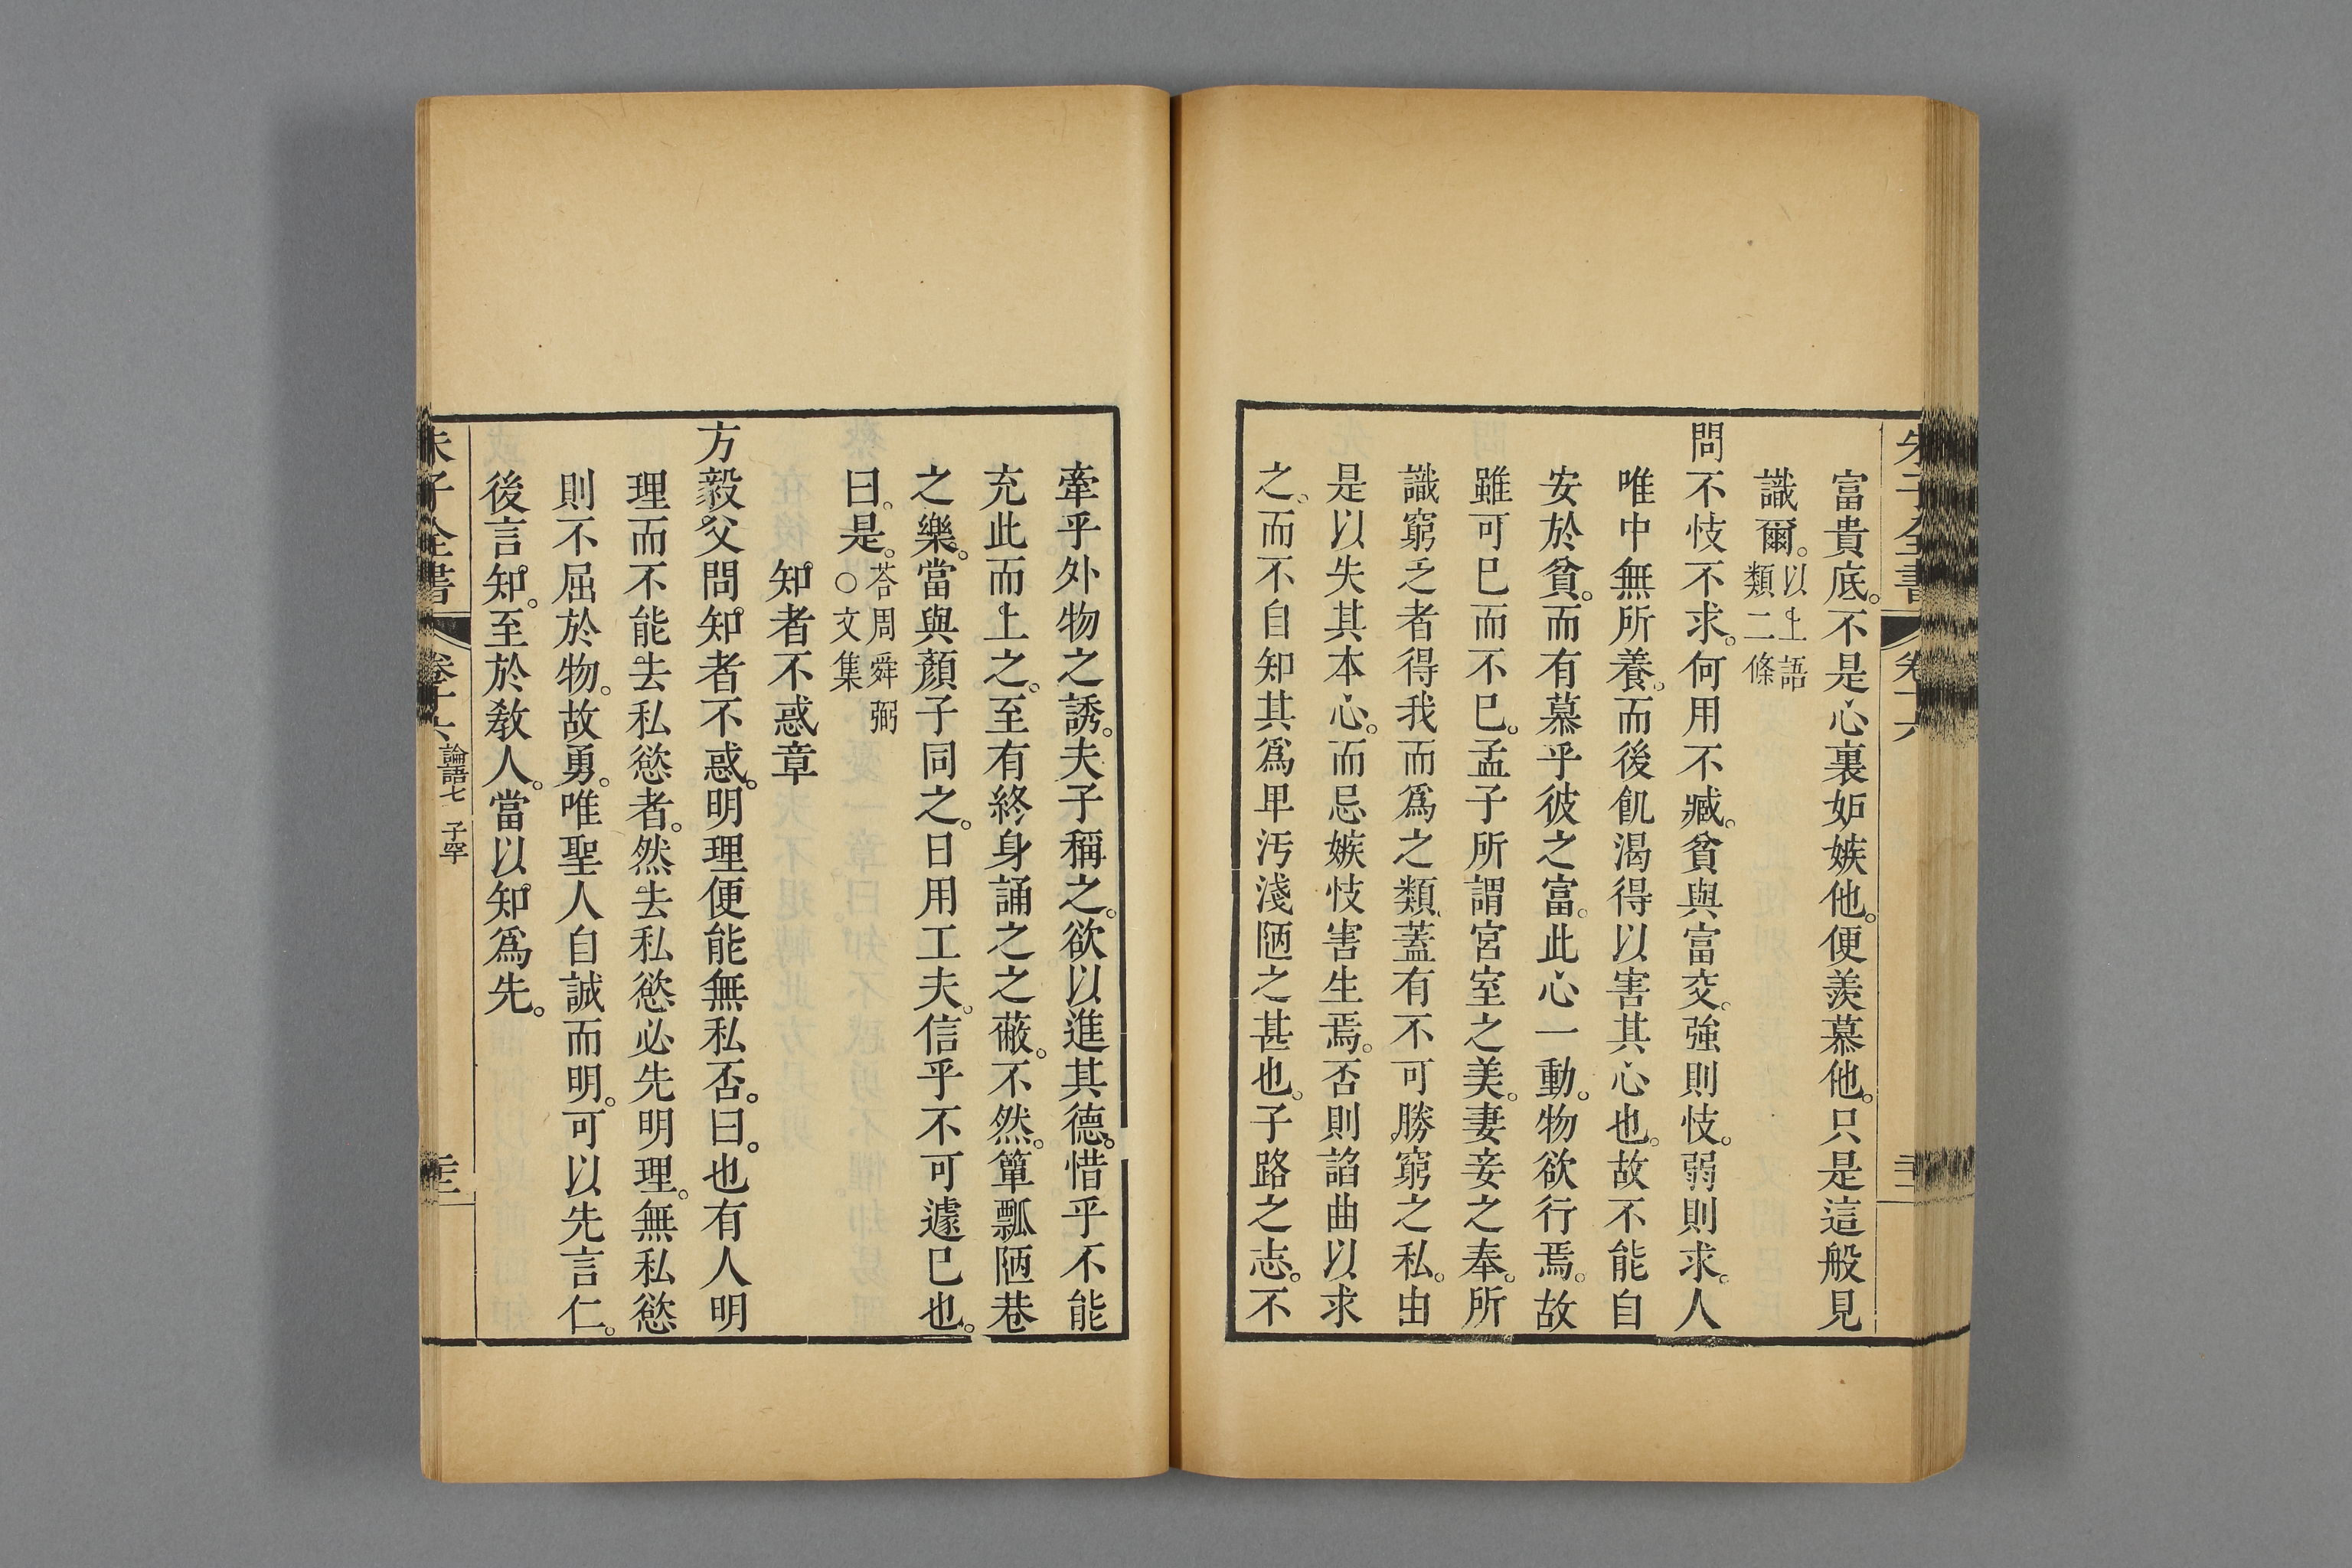 朱子全書 卷十六
富貴底。不是心裏妒嫉他。便羨慕他。只是這般見
識爾。以上語類二條
問不忮不求。何用不臧。貧與富交。強則忮。弱則求。人
唯中無所養。而後飢渴得以害其心也。故不能自
安於貧。而有慕乎彼之富。此心一動。物欲行焉。故
雖可已而不已。孟子所謂宮室之美。妻妾之奉。所
識窮乏者得我而爲之類。蓋有不可勝窮之私。由
是以失其本心。而忌嫉忮害生焉。否則諂曲以求
之。而不自知其爲卑汚淺陋之甚也。子路之志。不
牽乎外物之誘。夫子稱之。欲以進其德。惜乎不能
充此而上之。至有終身誦之之蔽。不然。簞瓢陋巷
之樂。當與顏子同之。日用工夫。信乎不可遽已也。
曰。是。答周舜弼○文集
知者不惑章
方毅父問知者不惑。明理便能無私否。曰。也有人明
理而不能去私慾者。然去私慾必先明理。無私慾
則不屈於物。故勇。唯聖人自誠而明。可以先言仁。
後言知。至於敎人。當以知爲先。
朱子全書 卷十六 論語七 子罕